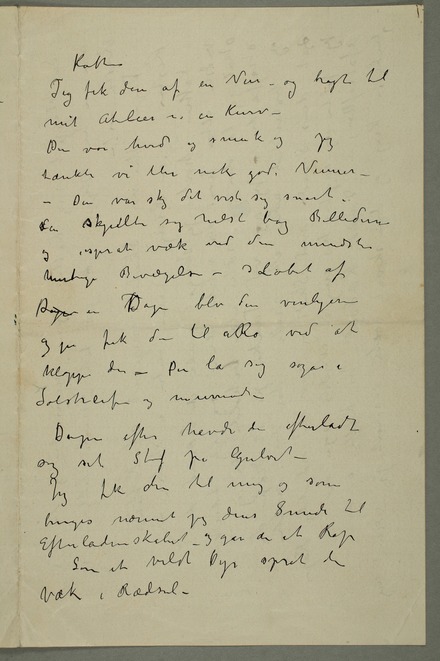 Katten
Jeg fik den af en Ven – og bragte til
mit Atelier i en Kurv –
Den var hvid og smuk og jeg
tænkte vi blev nok gode Venner –
– Den var sky det viste sig snart.
Den skjulte sig helst bag Billederne
og sprat væk ved den mindste
Bevægelse – I Løbet af
en Dage blev den venligere
og jeg fik den til at ved at
klappe den – Den la sig også i
Solstreifen og
Dagen efter havde den efterladt
sig sit på Gulvet –
Jeg fik den til mig og som
nærmet jeg dens Snude til
Efterladenskabet – og gav den et Rap
Som et vildt Dyr sprat den
væk i Rædsel –